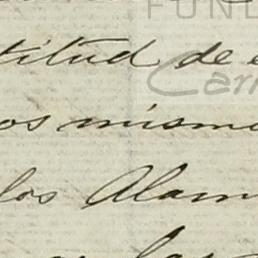 FUND
titud de e
Carm
os mismo
los Alam